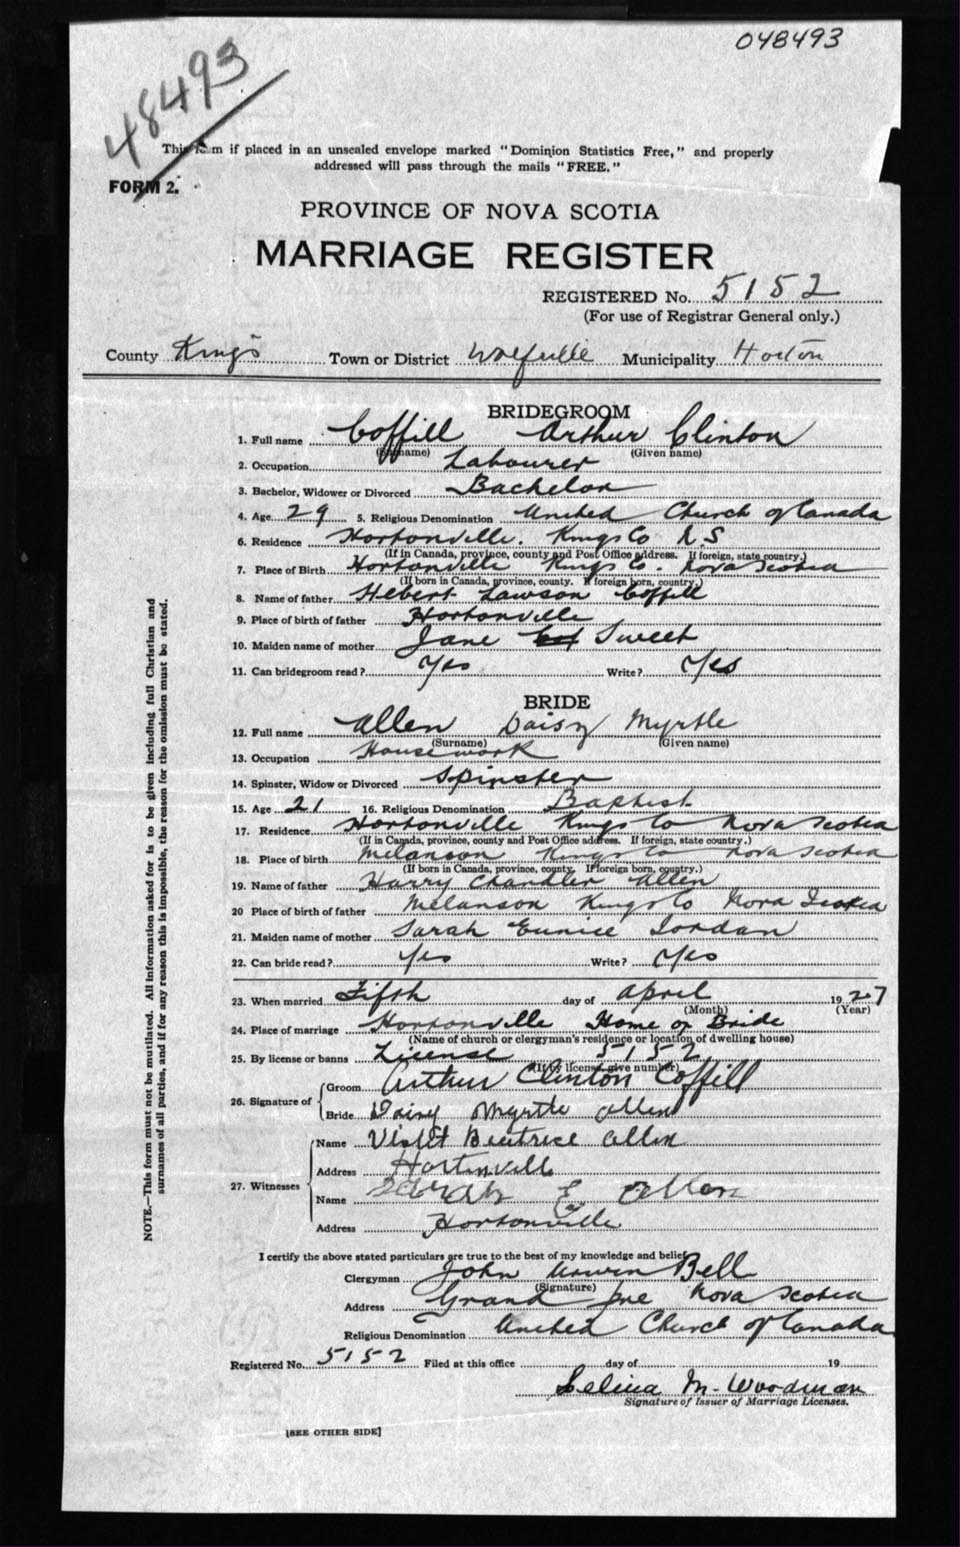 048493
48493
This form if placed in an unsealed envelope marked "Dominion Statistics Free," and properly
addressed will pass through the mails "FREE."
FORM 2.
PROVINCE OF NOVA SCOTIA
MARRIAGE REGISTER
REGISTERED No. 5152
(For use of Registrar General only.)
County Kings Town or District Wolfville Municipality Horton
BRIDEGROOM
1. Full name Coffill Arthur Clinton
(Surname) (Given name)
2. Occupation Labourer
3. Bachelor, Widower or Divorced Bachelor
4. Age 29 5. Religious Denomination United Church of Canada
6. Residence Hortonville. Kings Co N.S
(If in Canada, province, county and Post Office address. If foreign, state country.)
7. Place of Birth Hortonville Kings Co. Nova Scotia
(If born in Canada, province, county. If foreign born, country.)
8. Name of father Hebert Lawson Coffill
9. Place of birth of father Hortonville
10. Maiden name of mother Jane Sweet
11. Can bridegroom read? Yes Write? Yes
BRIDE
12. Full name Allen Daisy Myrtle
(Surname) (Given name)
13. Occupation Housework
14. Spinster, Widow or Divorced Spinster
15. Age 21 16. Religious Denomination Baptist
17. Residence Hortonville Kings Co Nova Scotia
(If in Canada, province, county and Post Office address. If foreign, state country.)
18. Place of birth Melanson Kings Co Nova Scotia
(If born in Canada, province, county. If foreign born, country.)
19. Name of father Harry Chandler Allen
20 Place of birth of father Melanson Kings Co Nova Scotia
21. Maiden name of mother Sarah Eunice Jordan
22. Can bride read? Yes Write? Yes
23. When married Fifth day of April 1927
(Month) (Year)
24. Place of marriage Hortonville Home of Bride
(Name of church or clergyman's residence or location of dwelling house)
25. By license or banns License 5152
(If by license, give number)
26. Signature of Groom Arthur Clinton Coffill
Bride Daisy Myrtle Allen
27. Witnesses Name Violet Beatrice Allen
Address Hortinvill
Name Sarah E Allen
Address Hortonville
I certify the above stated particulars are true to the best of my knowledge and belief,
Clergyman John Bell
(Signature)
Address Grand Pre Nova Scotia
Religious Denomination United Church of Canada
Registered No. 5152 Filed at this office day of 19
Selina M. Woodman
Signature of Issuer of Marriage Licenses.
[SEE OTHER SIDE]
NOTE.—This form must not be mutilated. All information asked for is to be given including full Christian and
surnames of all parties, and if for any reason this is impossible, the reason for the omission must be stated.